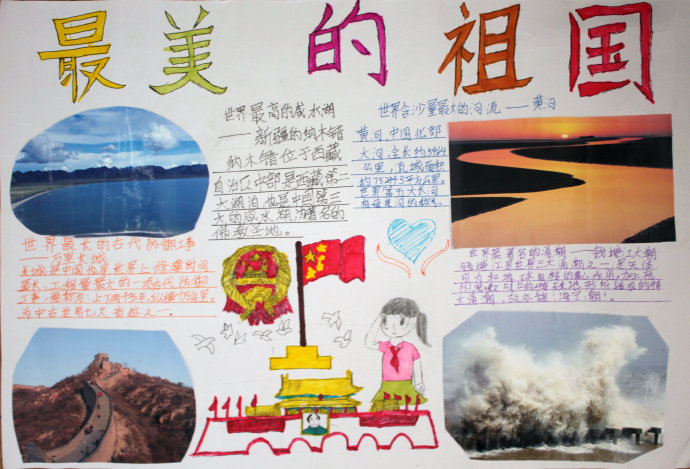 最美的祖国
世界最高的咸水湖
——新疆的纳木错
纳木错位于西藏
自治区中部是西藏第一
大湖泊,也是中国第三
大的咸水湖,为著名的
佛教圣地。
世界含沙量最大的河流——黄河
黄河,中国北部
大河,全长约5464
公里,流域面积
约752443平方公里。
世界第五大长河
有母亲河的称号。
世界最长的古代防御工事
——万里长城
长城是中国也是世界上修建时间
最长,工程量最大的一项古代防御
工事,
上下两千多年,纵横十万余里。
为中古世界七大奇迹之一。
世界最著名的涌潮——钱塘江大潮
钱塘江是世界三大涌潮之一,是天体
引力和地球自转的离心作用,加上杭
州湾喇叭口的特殊地形所造成的特
大涌潮,故亦称“海宁潮”。